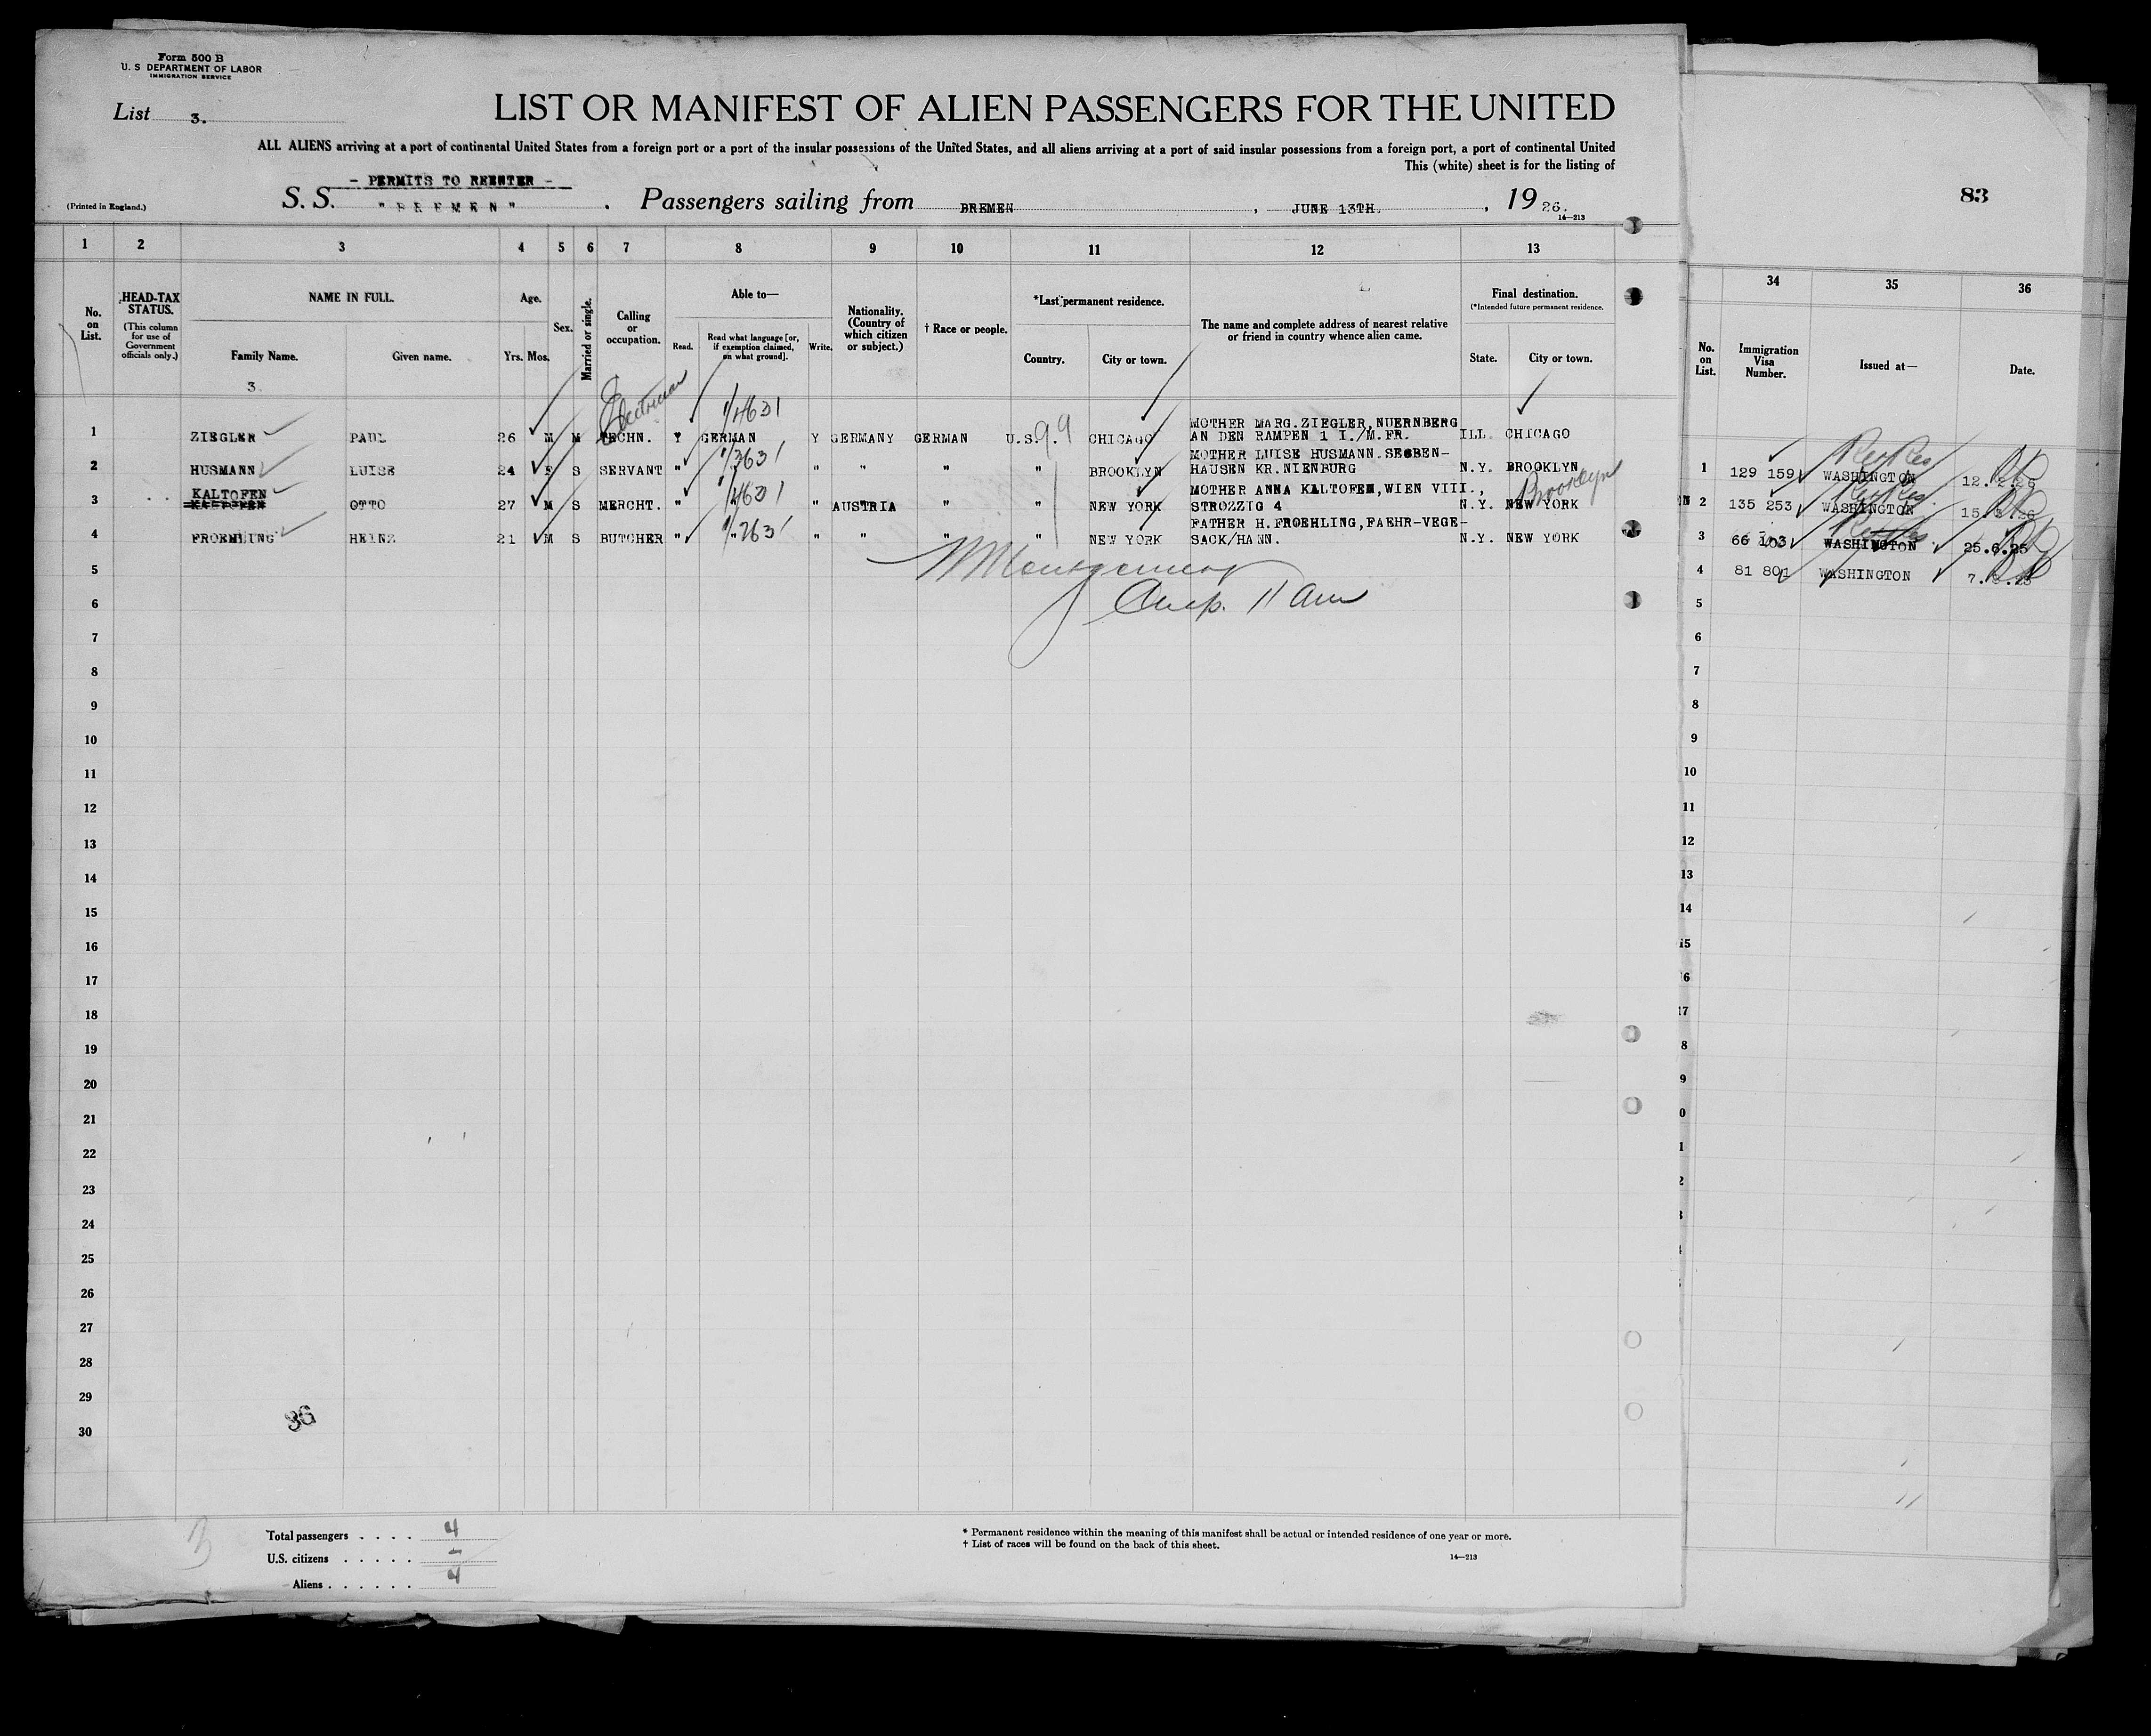 Form 500 B
U. S DEPARTMENT OF LABOR
IMMIGRATION SERVICE
List 3.
LIST OR MANIFEST OF ALIEN PASSENGERS FOR THE UNITED
ALL ALIENS arriving at a port of continental United States from a foreign port or a port of the insular possessions of the United States, and all aliens arriving at a port of said insular possessions from a foreign port, a port of continental United
This (white) sheet is for the listing of
- PERMITS TO REENTER -
(Printed in England.)
S. S. "BREMEN". Passengers sailing from BREMEN, JUNE 13TH, 19 26.
14—213
83
1 2 3 4 5 6 7 8 9 10 11 12 13
No. on List.
HEAD-TAX STATUS.
(This column for use of Government officials only.)
NAME IN FULL.
Family Name. Given name.
3
Age.
Yrs. Mos.
Sex.
Married or single.
Calling or occupation.
Able to—
Read. Read what language [or, if exemption claimed, on what ground]. Write.
Nationality. (Country of which citizen or subject.)
† Race or people.
*Last permanent residence.
Country. City or town.
The name and complete address of nearest relative or friend in country whence alien came.
Final destination.
(*Intended future permanent residence.
State. City or town.
34 35 36
No. on List.
Immigration Visa Number.
Issued at—
Date.
Electrician
1/4631
MOTHER MARG.ZIEGLER,NUERNBERG
1 ZIEGLER PAUL 26 M M TECHN. Y GERMAN Y GERMANY GERMAN U.S.A. 99 CHICAGO AN DEN RAMPEN 1 I./M.FR. ILL. CHICAGO
1/3631
MOTHER LUISE HUSMANN.SEBBEN-
2 HUSMANN LUISE 24 F S SERVANT " " " " " " BROOKLYN HAUSEN KR.NIENBURG N.Y. BROOKLYN
KALTOFEN 1/4631 MOTHER ANNA KALTOFEN,WIEN VIII., Brooklyn
3 KALTOFEN OTTO 27 M S MERCHT. " " AUSTRIA NEW YORK STROZZIG 4 N.Y. NEW YORK
FATHER H.FROEHLING,FAEHR-VEGE-
4 FROEHLING HEINZ 21 M S BUTCHER " " 1/2631 " " " " NEW YORK SACK/HANN. N.Y. NEW YORK
Montgomery
Insp. 11 am
5
6
7
8
9
10
11
12
13
14
15
16
17
18
19
20
21
22
23
24
25
26
27
28
29
30
36
1 129 159 WASHINGTON
2 135 253 WASHINGTON
3 66 103 WASHINGTON 25.6.25
4 81 801 WASHINGTON
5
6
7
8
9
10
11
12
13
14
15
6
17
8
9
0
1
2
Total passengers . . . . 4
U.S. citizens . . . . . -
Aliens . . . . . . 4
* Permanent residence within the meaning of this manifest shall be actual or intended residence of one year or more.
† List of races will be found on the back of this sheet.
14—213